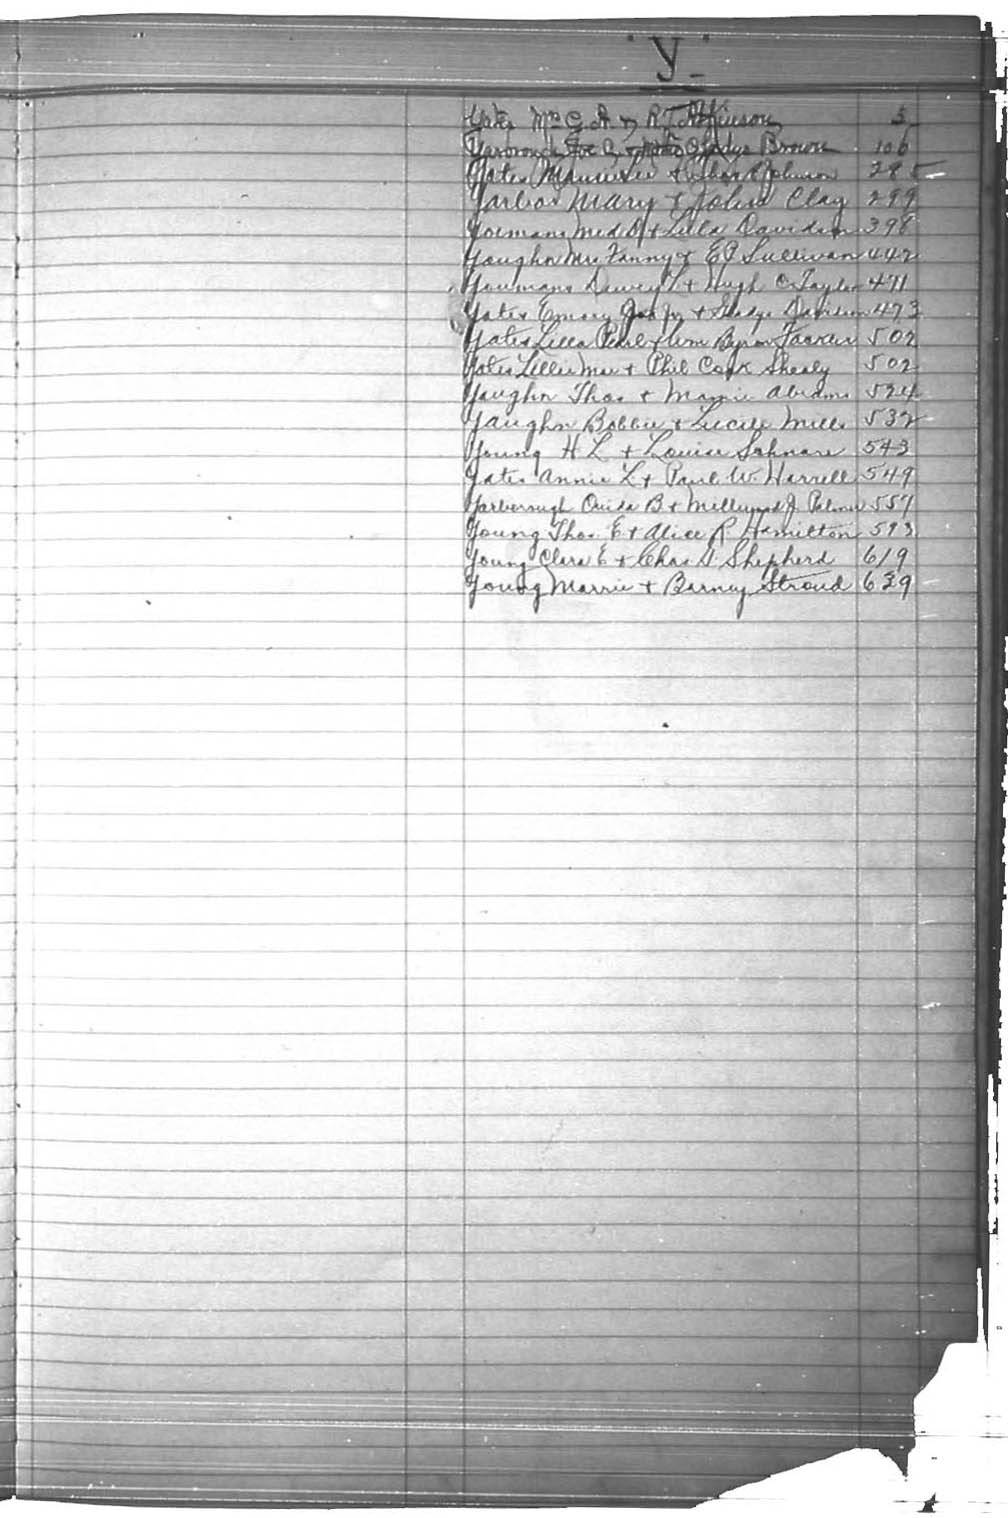 "Y"
Yates Mrs G. A. & R. T. Atkinson 5
Yarbrough Joe & Gladys Brown 106
Yates Lee + Johnson 285
Yarbor Mary + John Clay 299
Yoemans + Lula Davidson 398
Yaughn Mrs Fanny + E J Sullivan 442
Youmans Dewey L + Hugh C Taylor 471
Yates Emory Jos Jr + Davidson 473
Yates Lella Pearl + Wm Byron 502
Yates Lillie Mae + Phil Cook Shealy 502
Yaughn Thos + Mamie Abrams 524
Yaughn Bobbie + Lucile Mills 532
Young H L + Louise 543
Yates Annie L + Paul W. Harrell 549
Yarberough Ouida B + J. Palmer 557
Young Thos E + Alice R Hamilton 593
Young Clara E + Chas S Shepherd 619
Young Marrie + Barney Stroud 639